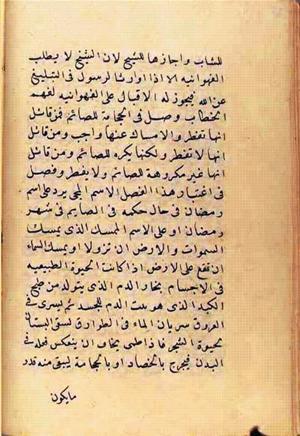 للشاب واجازها للشيخ لان الشيخ لا يطلب
الفهوانيه الا اذا اوارثا لرسول فى التبليغ
عن الله فيجوز له الاقبال على الفهوانيه لفهم
الخطاب وصل فى الحجامة للصائم فمن قائل
انها تفطر والامساك عنها واجب ومن قائل
انها لا تفطر ولكنها يكره للصائم ومن قائل
انها غير مكروهة للصائم ولا يفطر وفصل
فى اعتبار هذا الفصل الاسم المحيى يرد على اسم
رمضان فى حال حكمه فى الصايم فى شهر
رمضان او على الاسم الممسك الذى يمسك
السموات والارض ان تزولا او يمسك السماء
ان تقع على الارض اذا كانت الحيوة الطبيعيه
فى الاجسام بخار الدم الذى يتولد من طبخ
الكبد الذى هو بيت الدم للجسد ثم يسرى فى
العروق سريان الماء فى الطوارق لسقى البستان
لحيوة الشجر فاذا طمى يخاف ان ينعكس فعله فى
البدن فيخرج بالفصاد او بالحجامة ليبقى منه قدر
مايكون